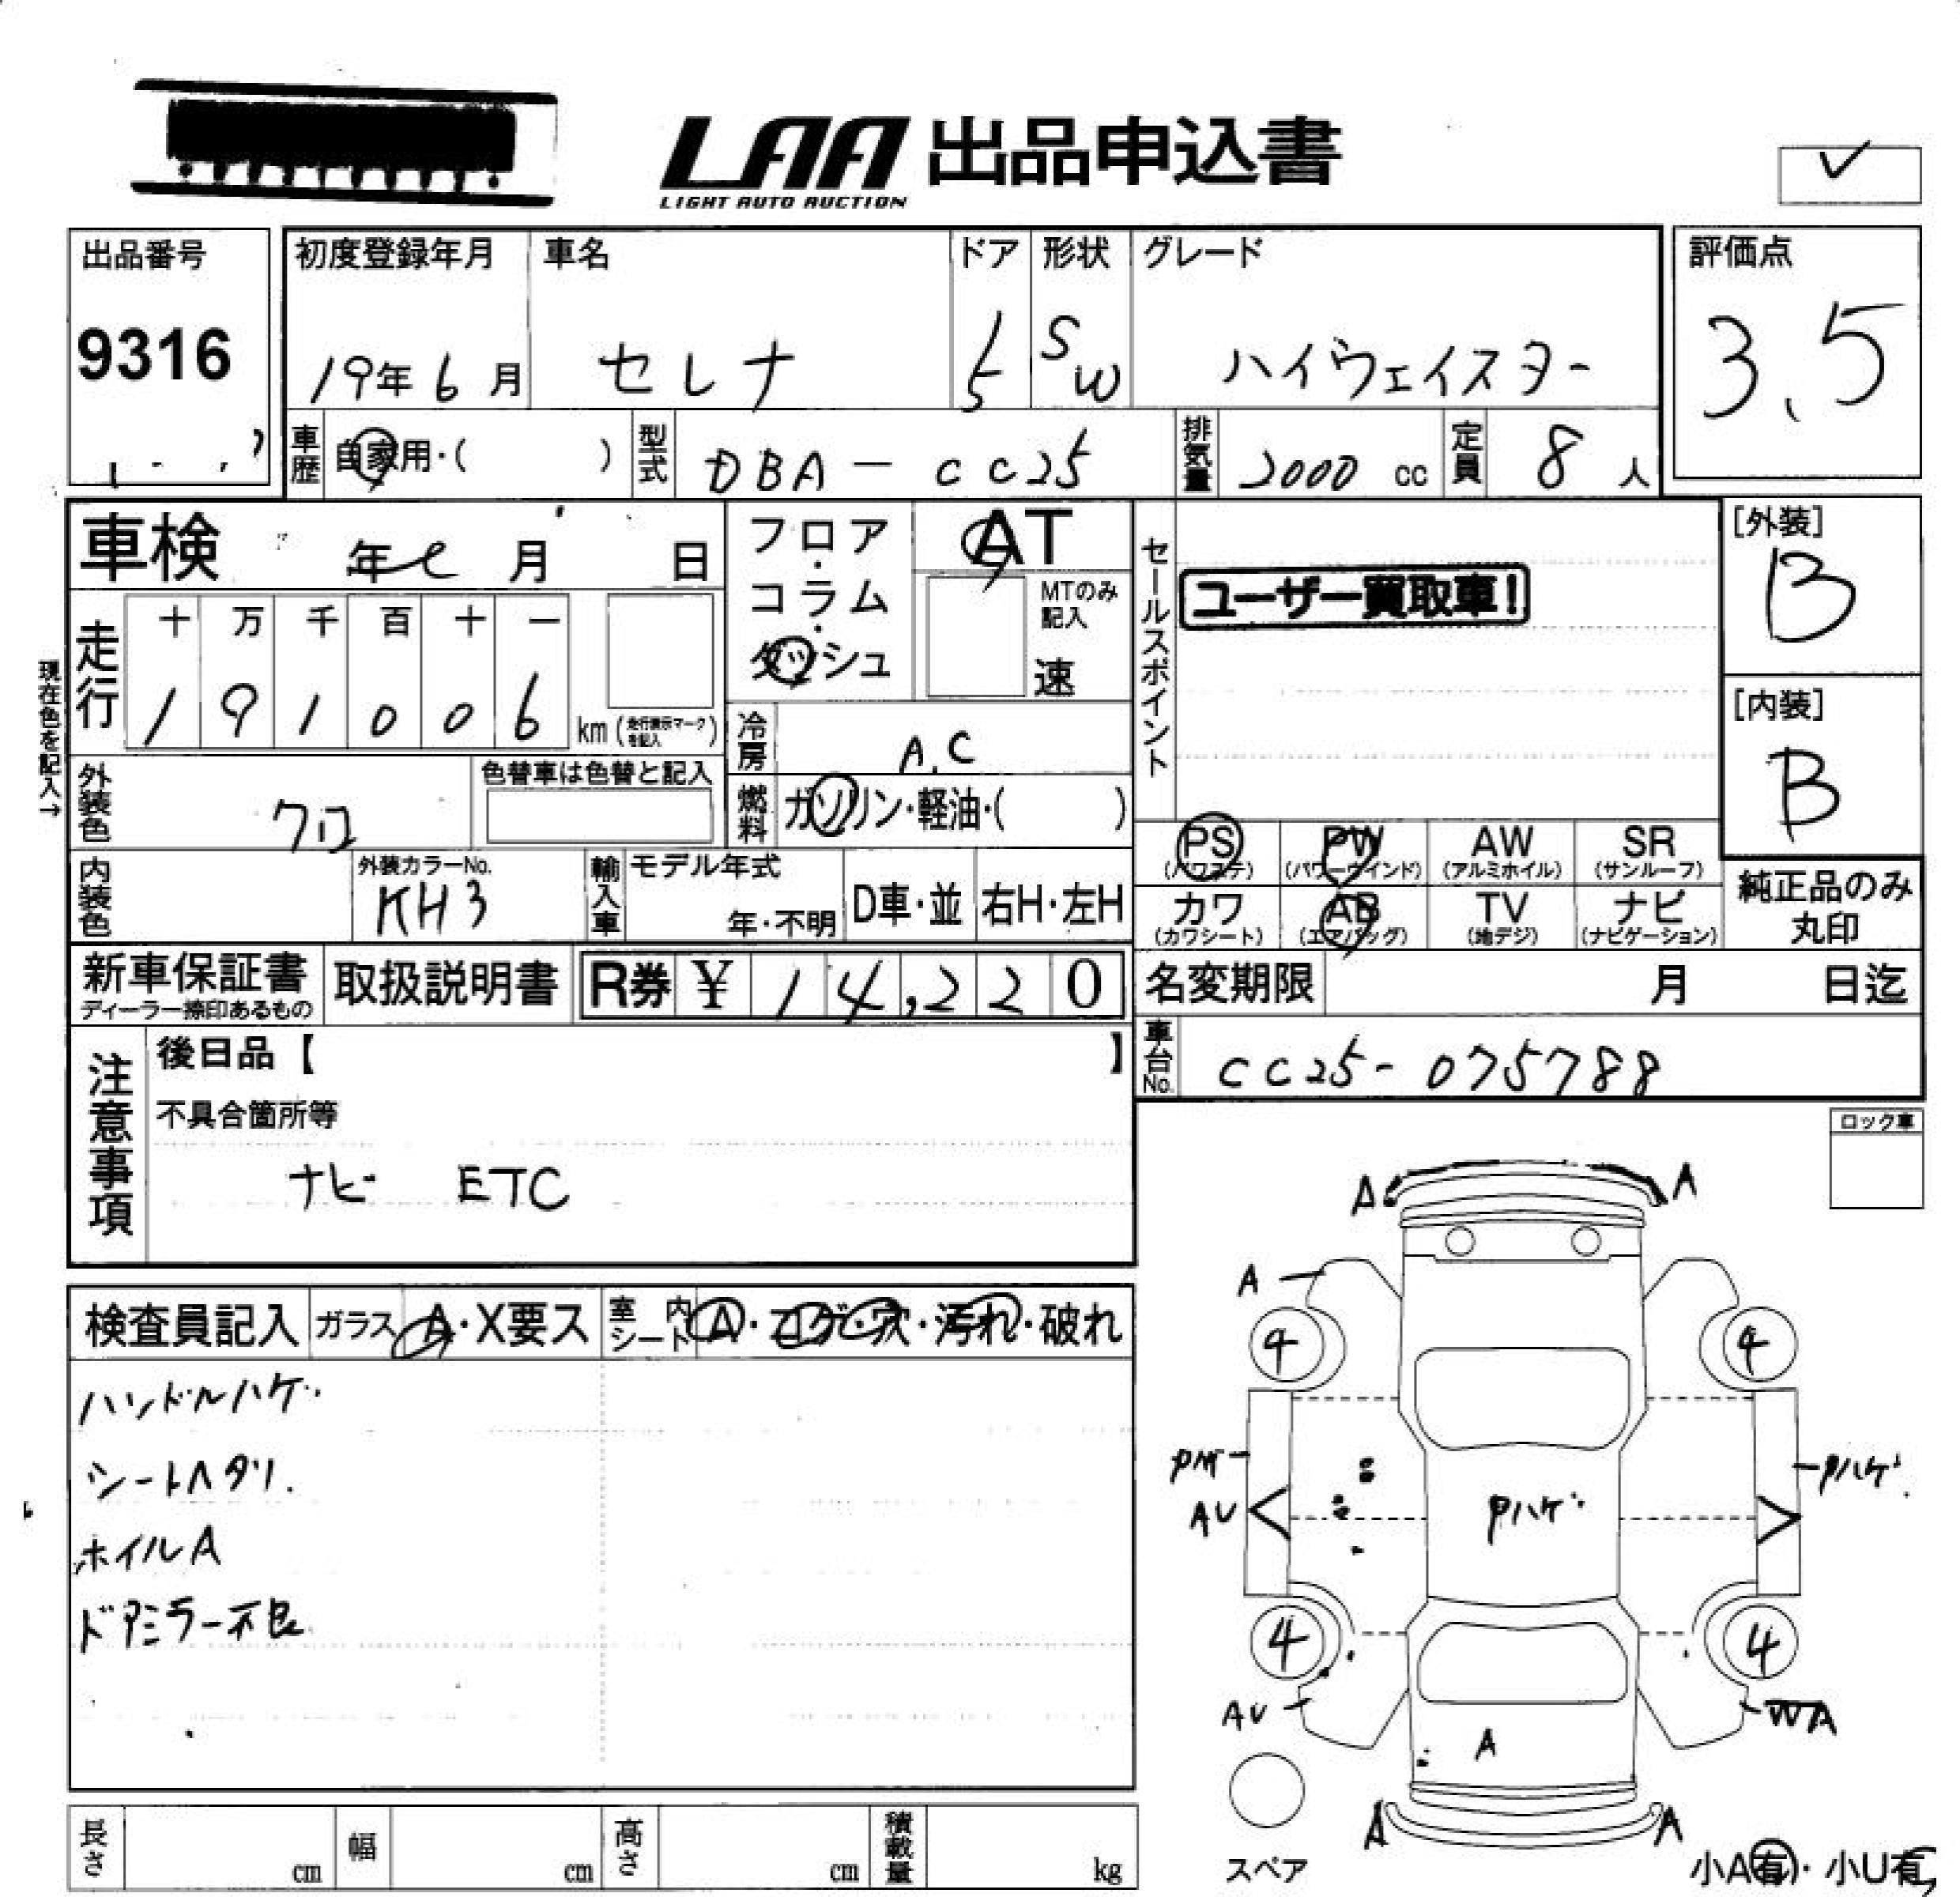 LAA 出品申込書
LIGHT AUTO AUCTION
出品番号
9316
初度登録年月
19年 6月
車名
セレナ
ドア
5
形状
SW
グレード
ハイウェイスター
評価点
3.5
車歴
自家用・( )
型式
DBA-CC25
排気量
2000 cc
定員
8人
車検 年 月 日
フロア・コラム・ダッシュ
AT
MTのみ記入
速
セールスポイント
ユーザー買取車!
[外装]
B
[内装]
B
現在色を記入→
走行
十 万 千 百 十 一
1 9 1 0 0 6 km (走行表示マークを記入)
冷房
A.C
外装色
クロ
色替車は色替と記入
燃料
ガソリン・軽油・( )
PS (パワステ)
PW (パワーウインド)
AW (アルミホイル)
SR (サンルーフ)
内装色
外装カラーNo.
KH3
輸入車
モデル年式
年・不明
D車・並
右H・左H
カワ (カワシート)
AB (エアバッグ)
TV (地デジ)
ナビ (ナビゲーション)
純正品のみ
丸印
新車保証書
ディーラー捺印あるもの
取扱説明書
R券 ¥ 14,220
名変期限 月 日迄
車台No.
CC25-075788
注意事項
後日品【 】
不具合箇所等
ナビ ETC
ロック車
検査員記入
ガラス A・X要ス
室内シート A・コゲ・穴・汚れ・破れ
ハンドルハゲ
シートヘタリ.
ホイルA
ドアミラー不良
A A
A
4 4
Pハゲ
Pハゲ
AU
Pハゲ
4 4
AU
WA
A
A A
スペア
小A有・小U有
長さ cm
幅 cm
高さ cm
積載量 kg